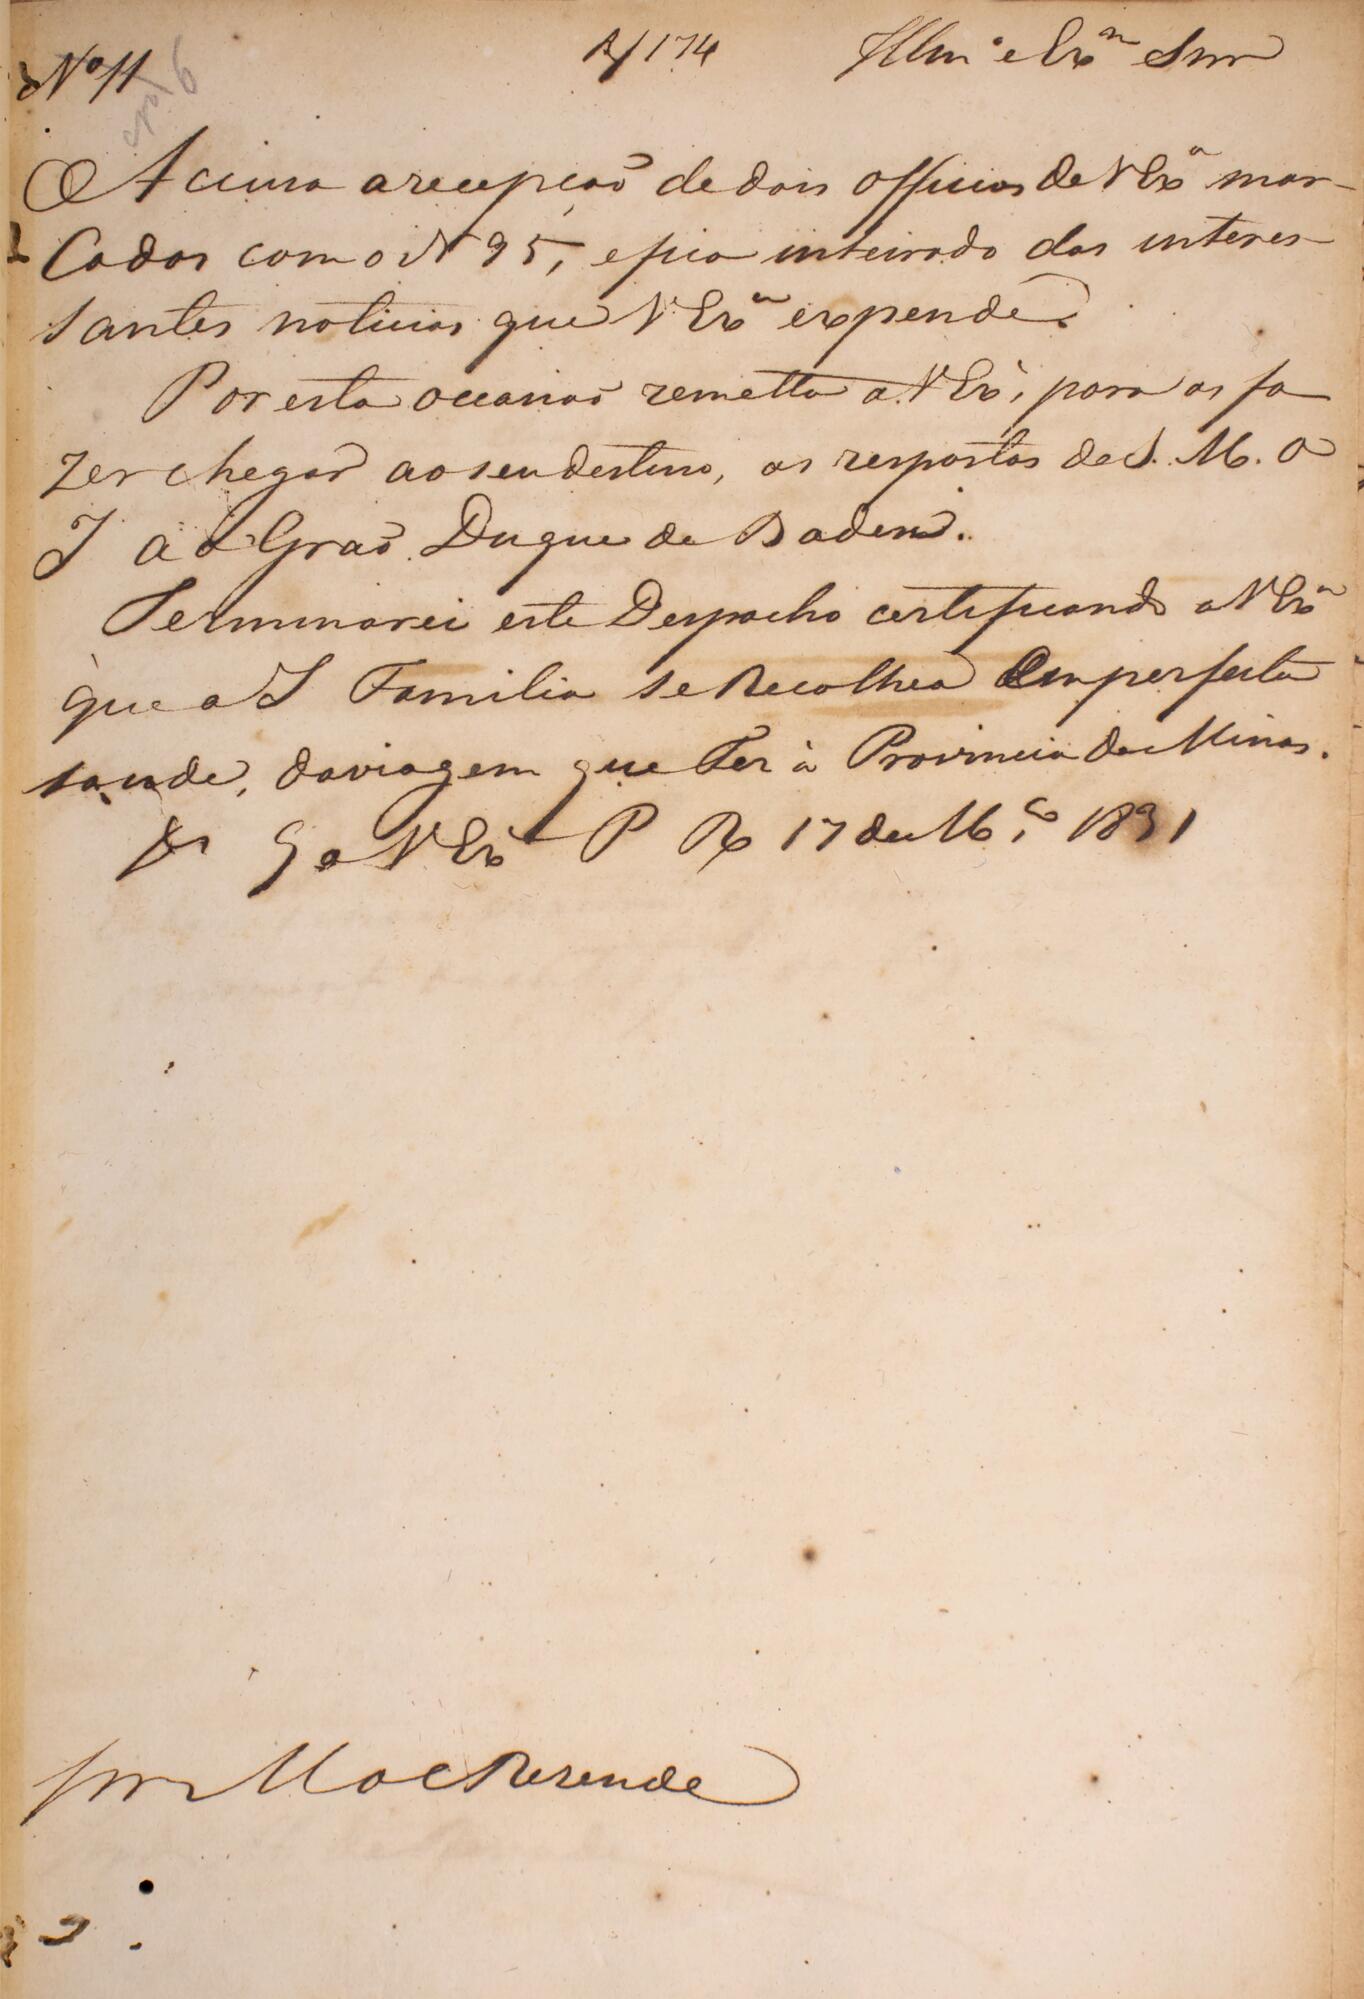 Nº 11 A/174 Illmº e Exm Snr
Acuso a recepçaõ de dois officios de V Exª mar-
cados com o N 95, e fico inteirado das interes-
santes noticias que V Exª expende.
Por esta occasiaõ remetto a V Ex, para as fa
zer chegar ao seu destino, as respostas de S. M. O
I a o Graõ Duque de Baden.
Terminarei este Despacho certificando a V Exª
que a I Familia se Recolheo em perfeita
saude, da viagem que Fez à Provincia de Minas.
Ds G a V Ex P R 17 de M.ço 1831
Snr M de Resende